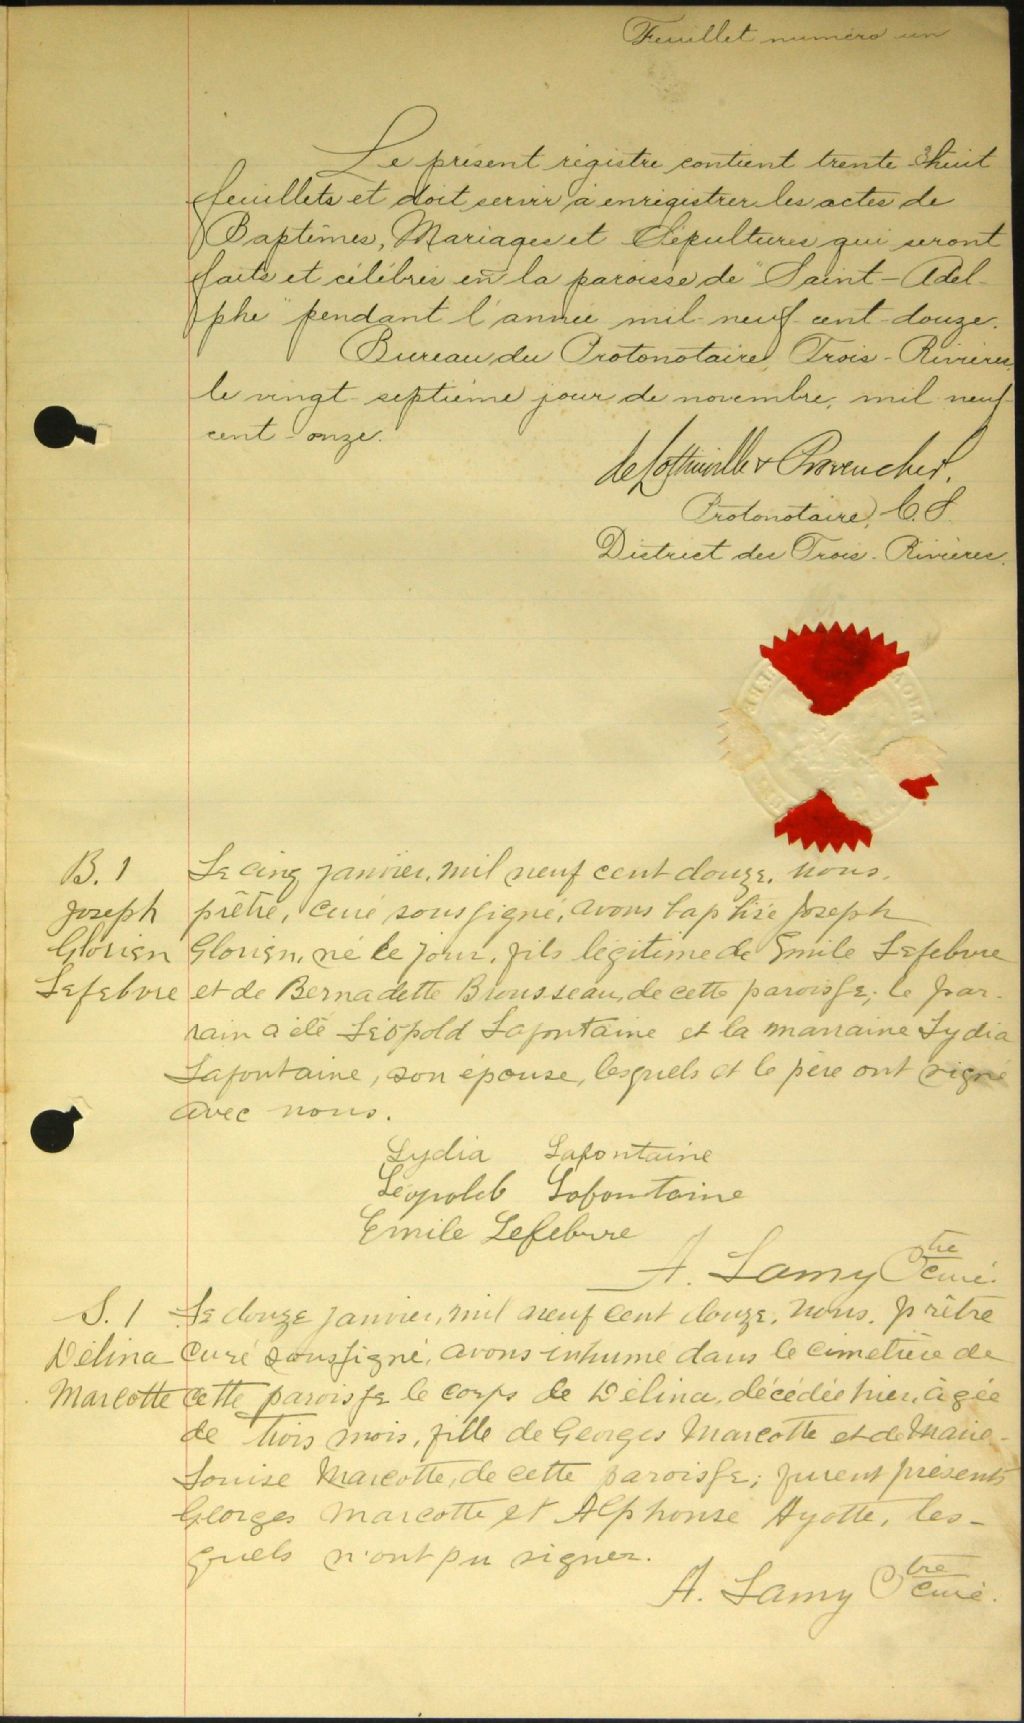 Feuillet numéro un
Le présent registre contient trente huit
feuillets et doit servir à enregistrer les actes de
Baptêmes, Mariages et Sépultures qui seront
faits et célébrés en la paroisse de "Saint-Adel-
phe" pendant l'année mil neuf cent douze.
Bureau du Protonotaire, Trois-Rivières,
le vingt septième jour de novembre, mil neuf
cent onze.
de Lottinville & Provencher,
Protonotaire, C.S.
District des Trois-Rivières.
B. 1
Joseph
Glorien
Lefebvre
Le cinq janvier, mil neuf cent douze, nous,
prêtre, curé soussigné, avons baptisé Joseph
Glorien, né le jour, fils légitime de Emile Lefebvre
et de Bernadette Brousseau, de cette paroisse; le par-
rain a été Léopold Lafontaine et la marraine Lydia
Lafontaine, son épouse, lesquels et le père ont signé
avec nous.
Lydia Lafontaine
Léopold Lafontaine
Emile Lefebvre
A. Lamy Ptre curé.
S. 1
Délina
Marcotte
Le douze janvier, mil neuf cent douze, nous, prêtre
curé soussigné, avons inhumé dans le cimetière de
cette paroisse le corps de Délina, décédée hier, âgée
de trois mois, fille de Georges Marcotte et de Marie-
Louise Marcotte, de cette paroisse; furent présents
Georges Marcotte et Alphonse Ayotte, les-
quels n'ont pu signer.
A. Lamy Ptre curé.